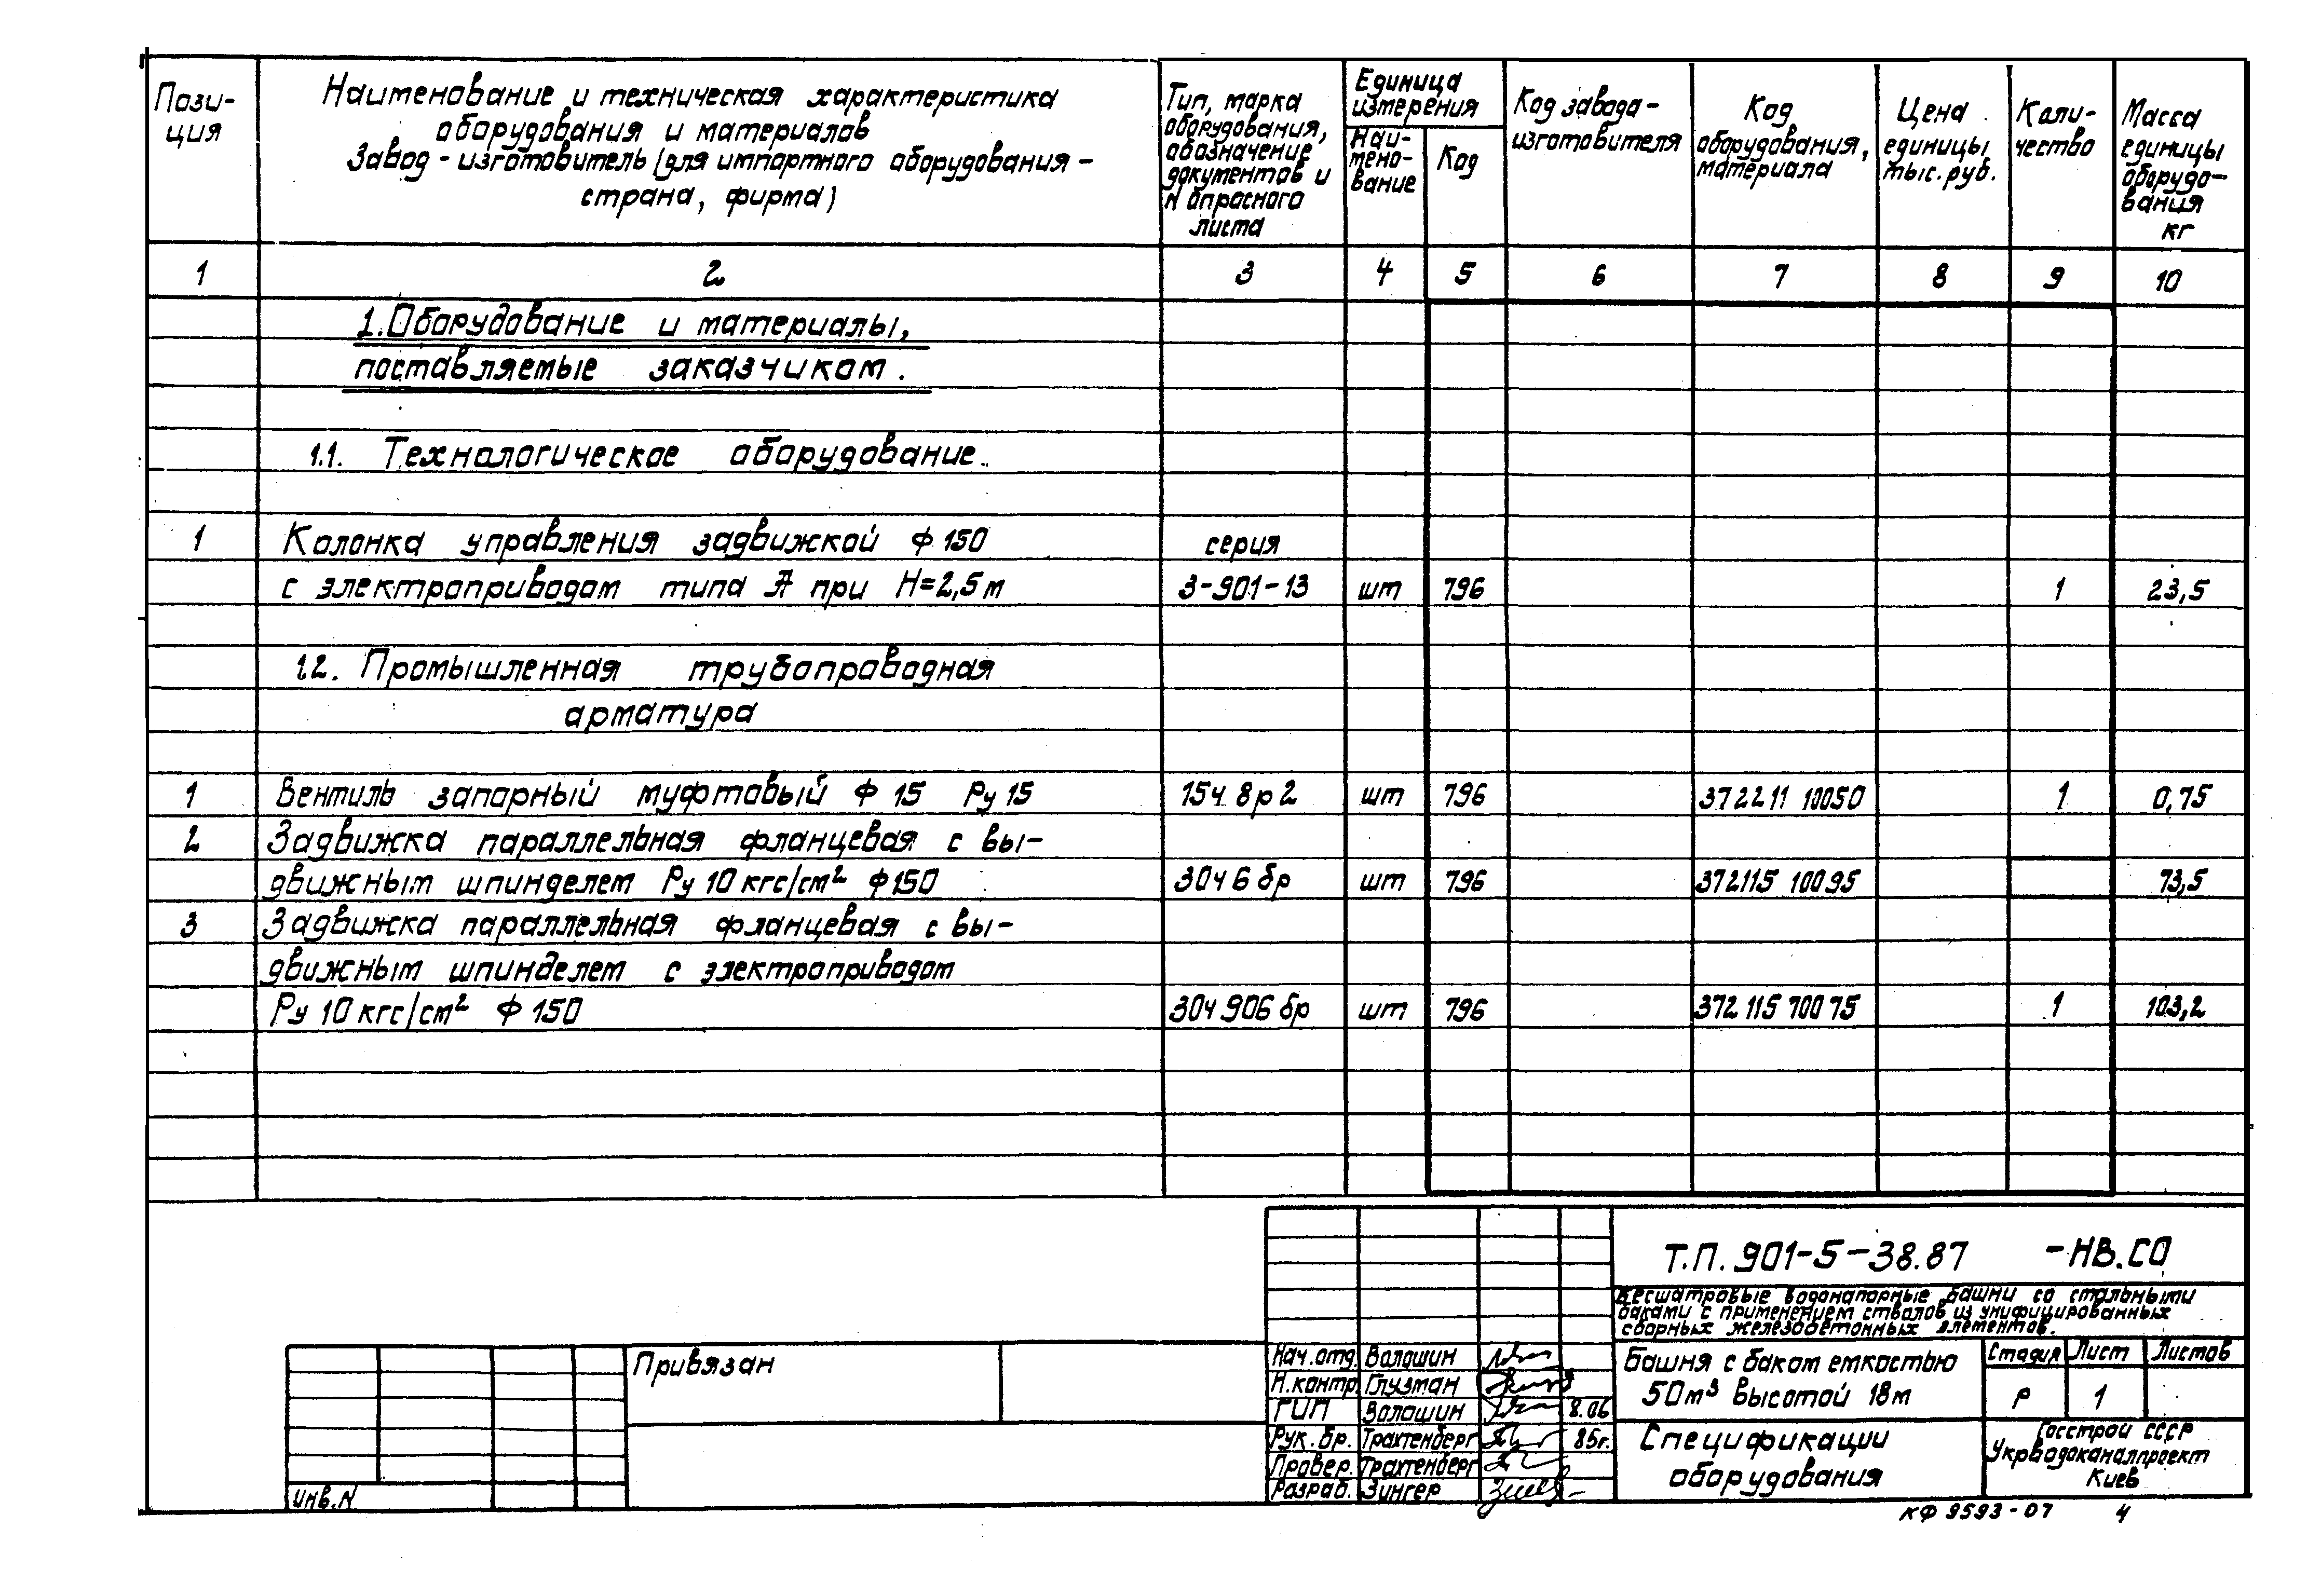 Пози-
ция
Наименование и техническая характеристика
оборудования и материалов
Завод - изготовитель (для импортного оборудования -
страна, фирма)
Тип, марка
оборудования,
обозначение
документов и
N опросного
листа
Единица
измерения
Наи-
мено-
вание
Код
Код завода-
изготовителя
Код
оборудования,
материала
Цена
единицы
тыс. руб.
Коли-
чество
Масса
единицы
оборудо-
вания
кг
1 2 3 4 5 6 7 8 9 10
1. Оборудование и материалы,
поставляемые заказчиком.
1.1. Технологическое оборудование.
1 Колонка управления задвижкой ф 150 серия
с электроприводом типа А при Н=2,5 м 3-901-13 шт 796 1 23,5
1.2. Промышленная трубопроводная
арматура
1 Вентиль запорный муфтовый ф 15 Ру 15 15ч 8р 2 шт 796 372211 10050 1 0,75
2 Задвижка параллельная фланцевая с вы-
движным шпинделем Ру 10 кгс/см² ф 150 30ч 6 бр шт 796 372115 10095 73,5
3 Задвижка параллельная фланцевая с вы-
движным шпинделем с электроприводом
Ру 10 кгс/см² ф 150 30ч 906 бр шт 796 372 115 70075 1 103,2
Т.П. 901-5-38.87 -НВ.СО
Бесшатровые водонапорные башни со стальными
баками с применением стволов из унифицированных
сборных железобетонных элементов.
Привязан
Инв. N
Нач. отд. Волошин
Н. контр. Глузман
ГИП Волошин 8.06
Рук. бр. Трахтенберг 85г.
Провер. Трахтенберг
Разраб. Зингер
Башня с баком емкостью
50 м³ высотой 18 м
Стадия Лист Листов
Р 1
Спецификации
оборудования
Госстрой СССР
Укрводоканалпроект
Киев
КФ 9593-07 4